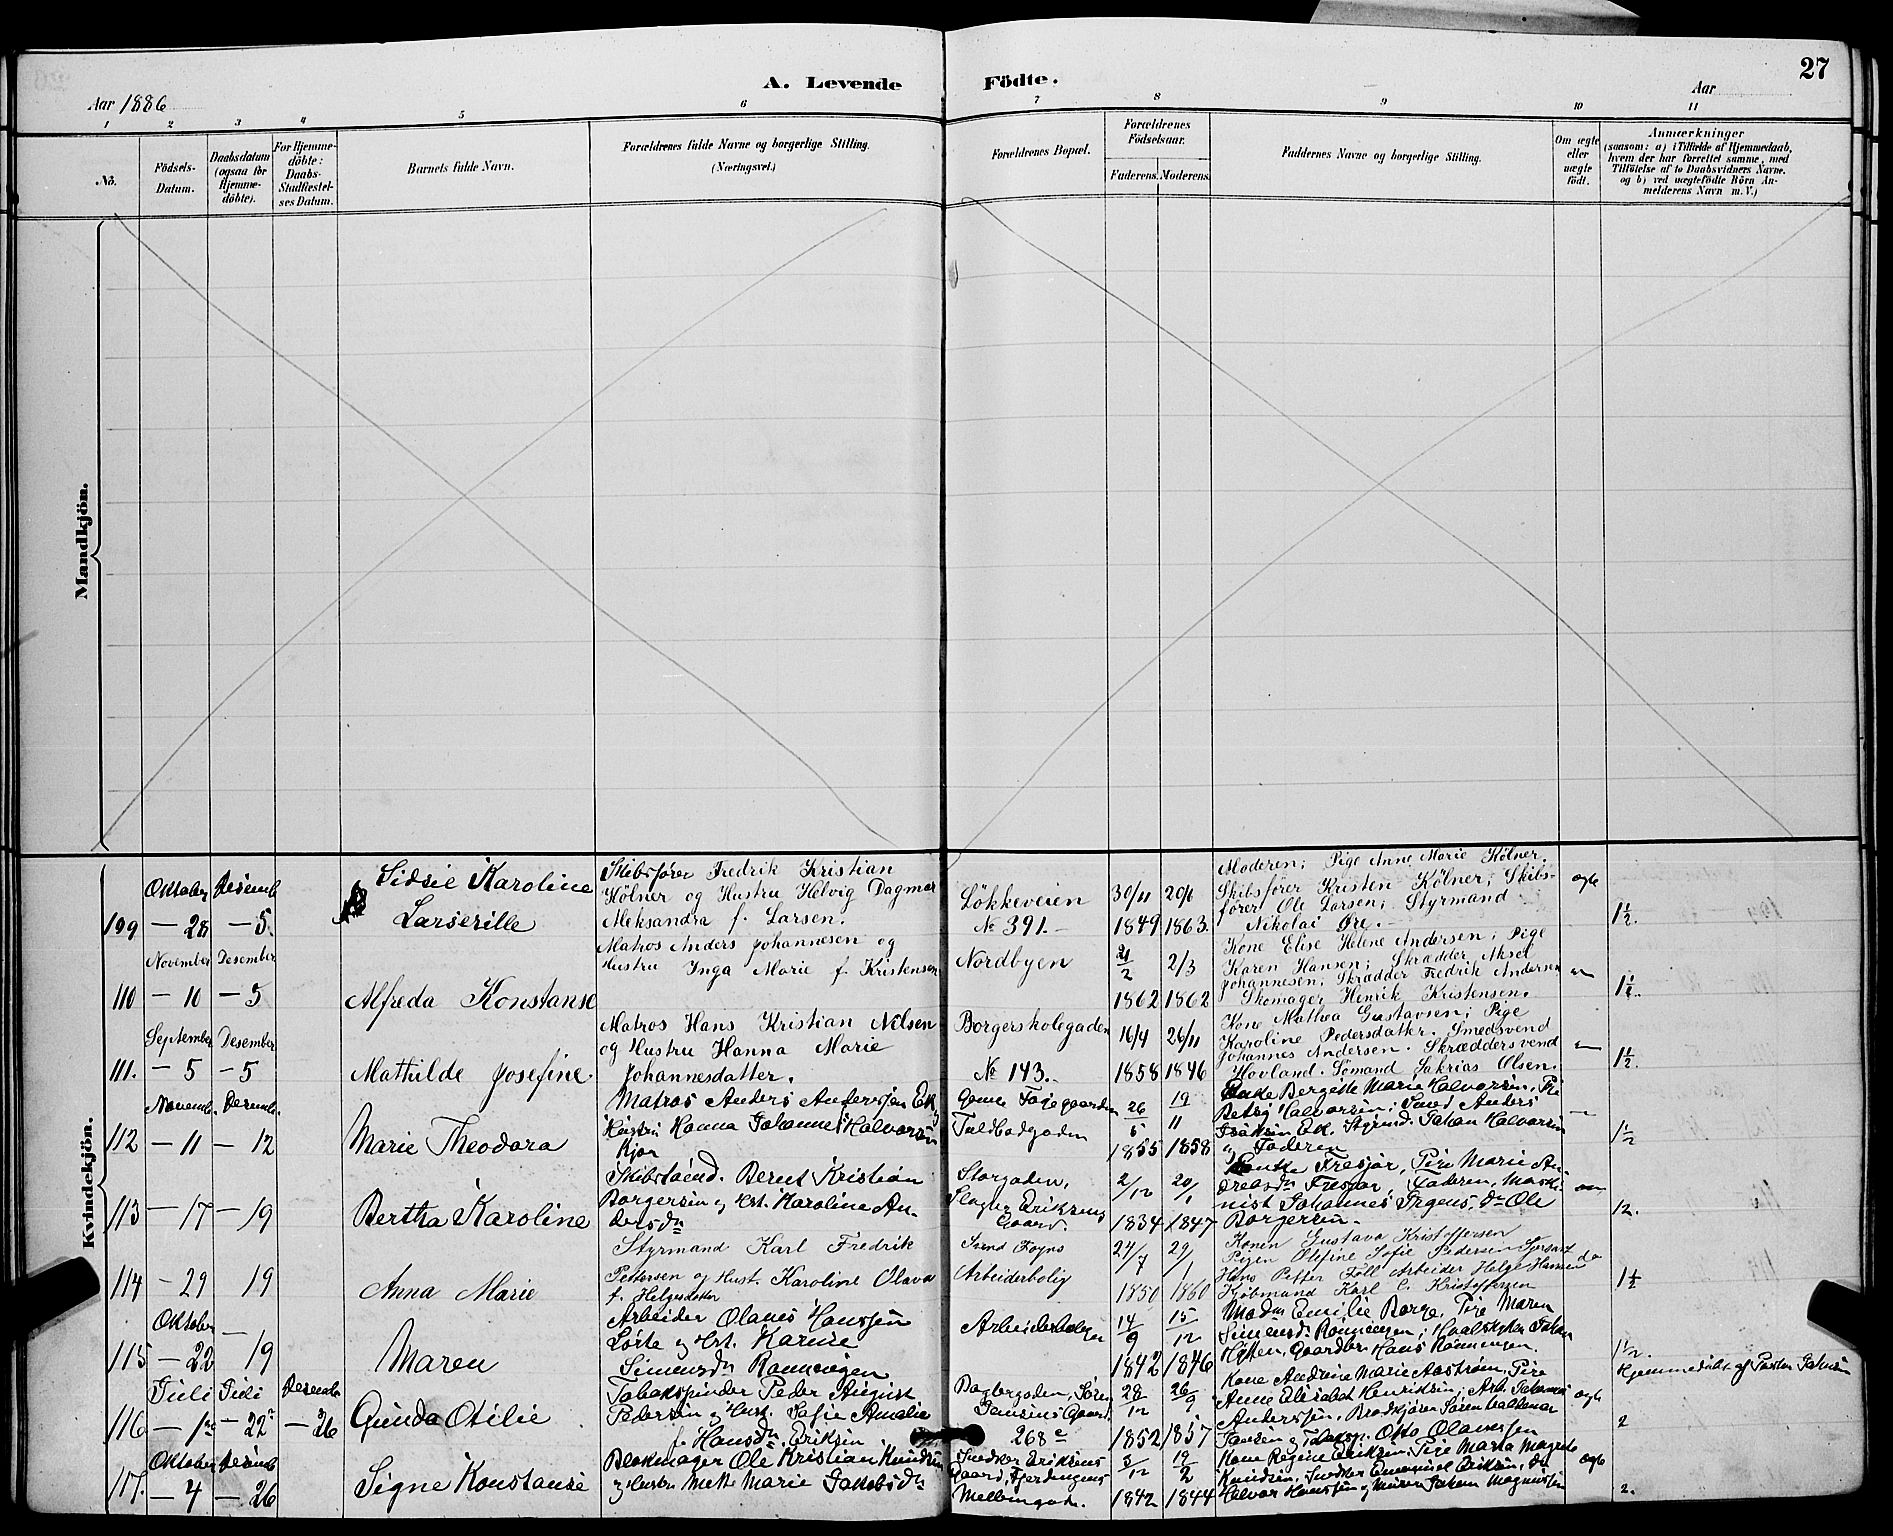 27
Aar 1886
A. Levende Födte.
Aar
1 2 3 4 5 6 7 8 9 10 11
No.
Födsels-Datum.
Daabsdatum (ogsaa for Hjemme-döbte).
For Hjemme-döbte: Daabs-Stadfæstel-ses Datum.
Barnets fulde Navn.
Forældrenes fulde Navne og borgerlige Stilling.
(Næringsvei.)
Forældrenes Bopæl.
Forældrenes Födselsaar.
Faderens. Moderens.
Faddernes Navne og borgerlige Stilling.
Om ægte eller uægte födt.
Anmærkninger
(saasom: a) i Tilfælde af Hjemmedaab,
hvem der har forrettet samme, med
Tilföielse af to Daabsvidners Navne.
og b) ved uægtefödte Börn An-
melderens Navn m. V.)
Mandkjön.
Kvindekjön.
109 Oktober — 28 Desemb — 5
Sidsie Karoline
Larserille
Skibsfører Fredrik Kristian
Hölner og Hustru Helvig Dagmar
Aleksandra f. Larsen.
Lökkeveien
No 391.
30/11 1849 20/1 1863.
Moderen; Pige Anne Marie Kölner.
Skibsfører Kristen Kölner; Skibs-
fører Ole Larsen; Styrmand
Nikolai Øre.
ægte
1 1/2.
110 November — 10 Desember — 5
Alfreda Konstanse
Matros Anders Johannesen og
Hustru Inga Marie f. Kristensen
Nordbyen
21/2 1862 2/3 1862
Kone Elise Helene Andersen; Pige
Karen Hansen; Skrædder Aksel
Johannesen; Skrædder Fredrik Andersen
Skomager Henrik Kristensen.
111. September — 5 Desember — 5
Mathilde Josefine
Matros Hans Kristian Nilsen
og Hustru Hanna Marie
Johannesdatter.
Borgerskolegaden
No 143.
16/4 1858 26/11 1846
Kone Mathea Gustavsen; Pige
Karoline Pedersdatter. Smedsvend
Johannes Andersen. Skræddersvend
Hovland. Sömand Sakrias Olsen.
1 1/2.
112 Novemb. — 11 Desemb. — 12
Marie Theodora
Matros Anders Andersen Ek
Hustru Hanna Johanne Halvorsen
Kjær
Toldbodgaden
26/5 1855 19/11 1858
Enke Bergitte Marie Halvorsen, Pi
Betsy Halvorsen; Smed Anders
Isaksen Ek. Styrmd. Johan Halvorsen
og Faderen
1 1/2
113 — 17 — 19
Bertha Karoline
Skibstömd. Bernt Kristian
Borgersen og Hst. Karoline An-
dersdn
Storgaden,
Slagter Eriksens
Gaard.
2/12 1834 20/1 1847
Faderen,
nist Johannes Irgens, Do Ole
Borgersen.
12.
114 — 29 19
Anna Marie
Styrmand Karl Fredrik
Pettersen og Hust. Karoline Olava
f. Helgesdatter
Svend Foyns
Arbeiderbolig
24/7 1850 29/1 1860
Konen Gustava Kristoffersen
Pigen Olefine Sofie Pedersen
Hans Petter Föll Arbeider Helge Hansen
Kjöbmand Karl C. Kristoffersen
do
115 Oktober — 22 — 19
Maren
Arbeider Olaves Hanssen
Lörte og Hst. Karine
Simensdn Rønningen
Arbeiderboligen
14/9 1842 15/12 1846
Madm Emilie Borge, Pige Maren
Simensdn Rønningen; Johan
Hytten, Gaardbr. Hans Rønningen.
1 1/2.
Hjemmedöbt af Pastor Jahnsen
116 Juli — 1ste Juli — 22 Desemb — 26
Gunda Otilie
Tobakspinder Peder August
Pedersen og Hust. Sofie Amalie
f. Hansdn Eriksen
Bagtergaden, Sören
Jensens Gaard
268 c
28/12 1852 26/9 1857
Kone Andrine Marie Aaström, Pige
Anne Elisabet Henriksen; Arb. Johannes
Anderssen, Brödkjörer Sören Valdemar
Jansen og Tobaksp. Otto Olaussen
ægte
2
117. Oktober — 4 Desemb — 26
Signe Konstanse
Blokmager Ole Kristian Knudsen
og Hustru Mette Marie Jakobsdn
Snedker Eriksens
Gaard, Fjerdingens
Mellemgade.
3/12 1842 19/2 1844
Kone Regine Eriksen, Pige Marta Magrete
Knudsen, Snedker Emanuel Eriksen, Do
Halvor Hanssen og Murer Johan Magnussen
ægte
2.